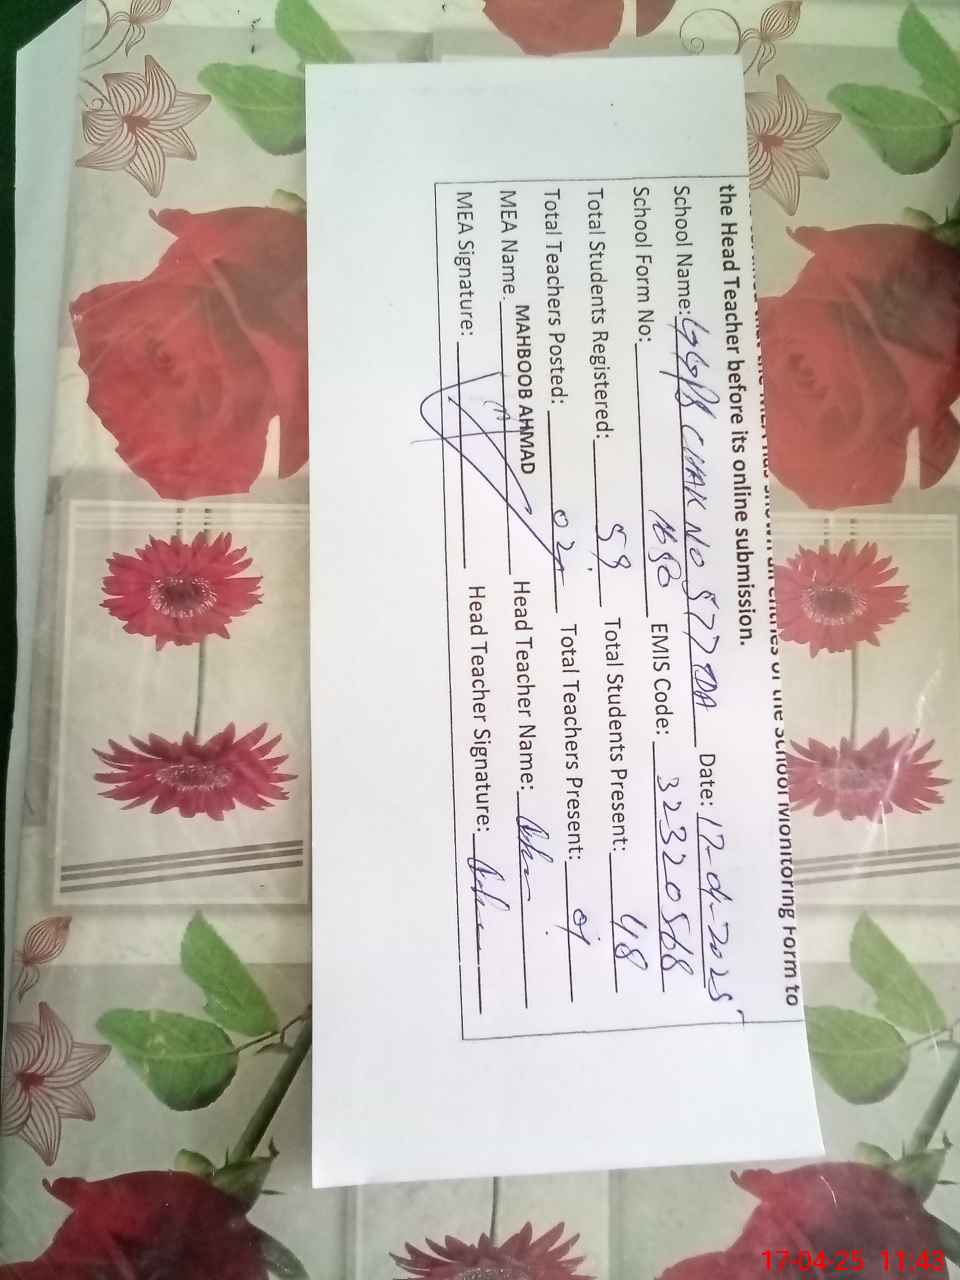 the Head Teacher before its online submission.
School Name: GGPS CHAK NO 577 TDA Date: 17-04-2025
School Form No: 1680 EMIS Code: 32320568
Total Students Registered: 59 Total Students Present: 48
Total Teachers Posted: 02 Total Teachers Present: 01
MEA Name. MAHBOOB AHMAD Head Teacher Name:
MEA Signature: Head Teacher Signature:
17-04-25 11:43